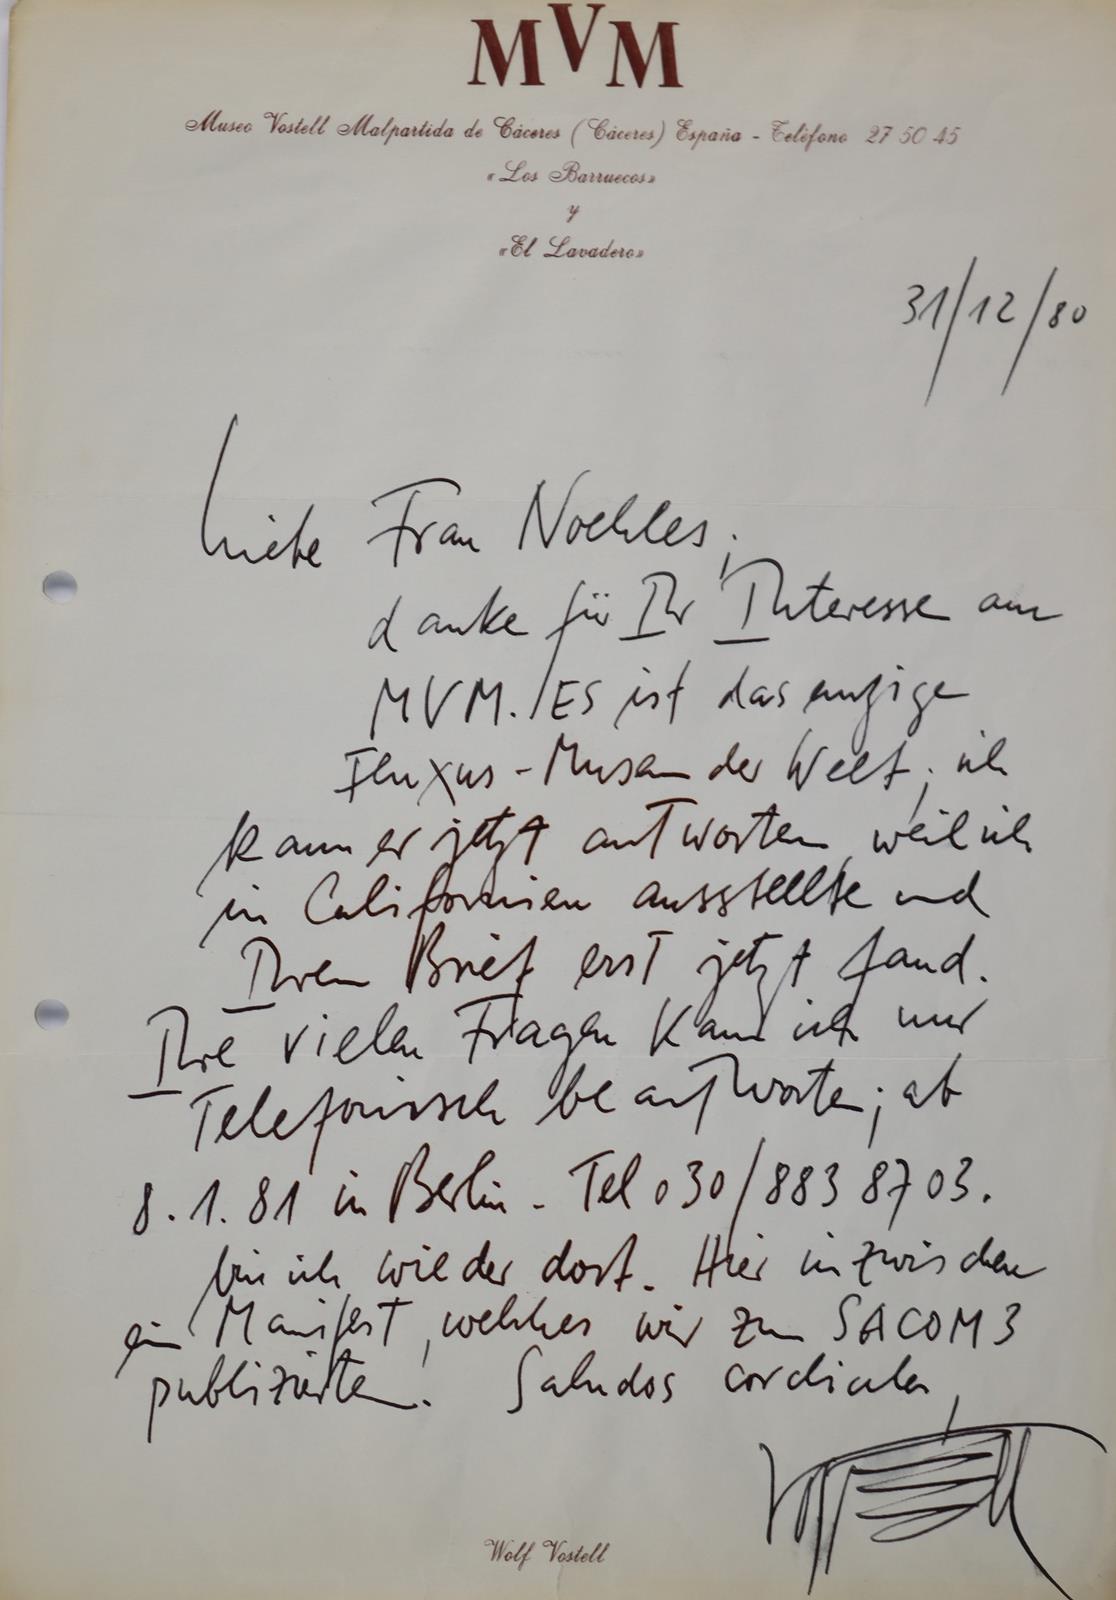 MVM
Museo Vostell Malpartida de Cáceres (Cáceres) España - Teléfono 27 50 45
«Los Barruecos»
y
«El Lavadero»
31/12/80
Liebe Frau Noehles,
danke für Ihr Interesse am
MVM. / ES ist das einzige
Fluxus-Museum der Welt; ich
kann er jetzt antworten, weil ich
in Californien ausstellte und
Ihren Brief erst jetzt fand.
Ihre vielen Fragen kann ich nur
Telefonisch beantworten; ab
8.1.81 in Berlin - Tel 030/883 87 03.
bin ich wieder dort. Hier inzwischen
ein Manifest, welches wir zum SACOM 3
publizierten. Saludos cordiales,
Vostell
Wolf Vostell